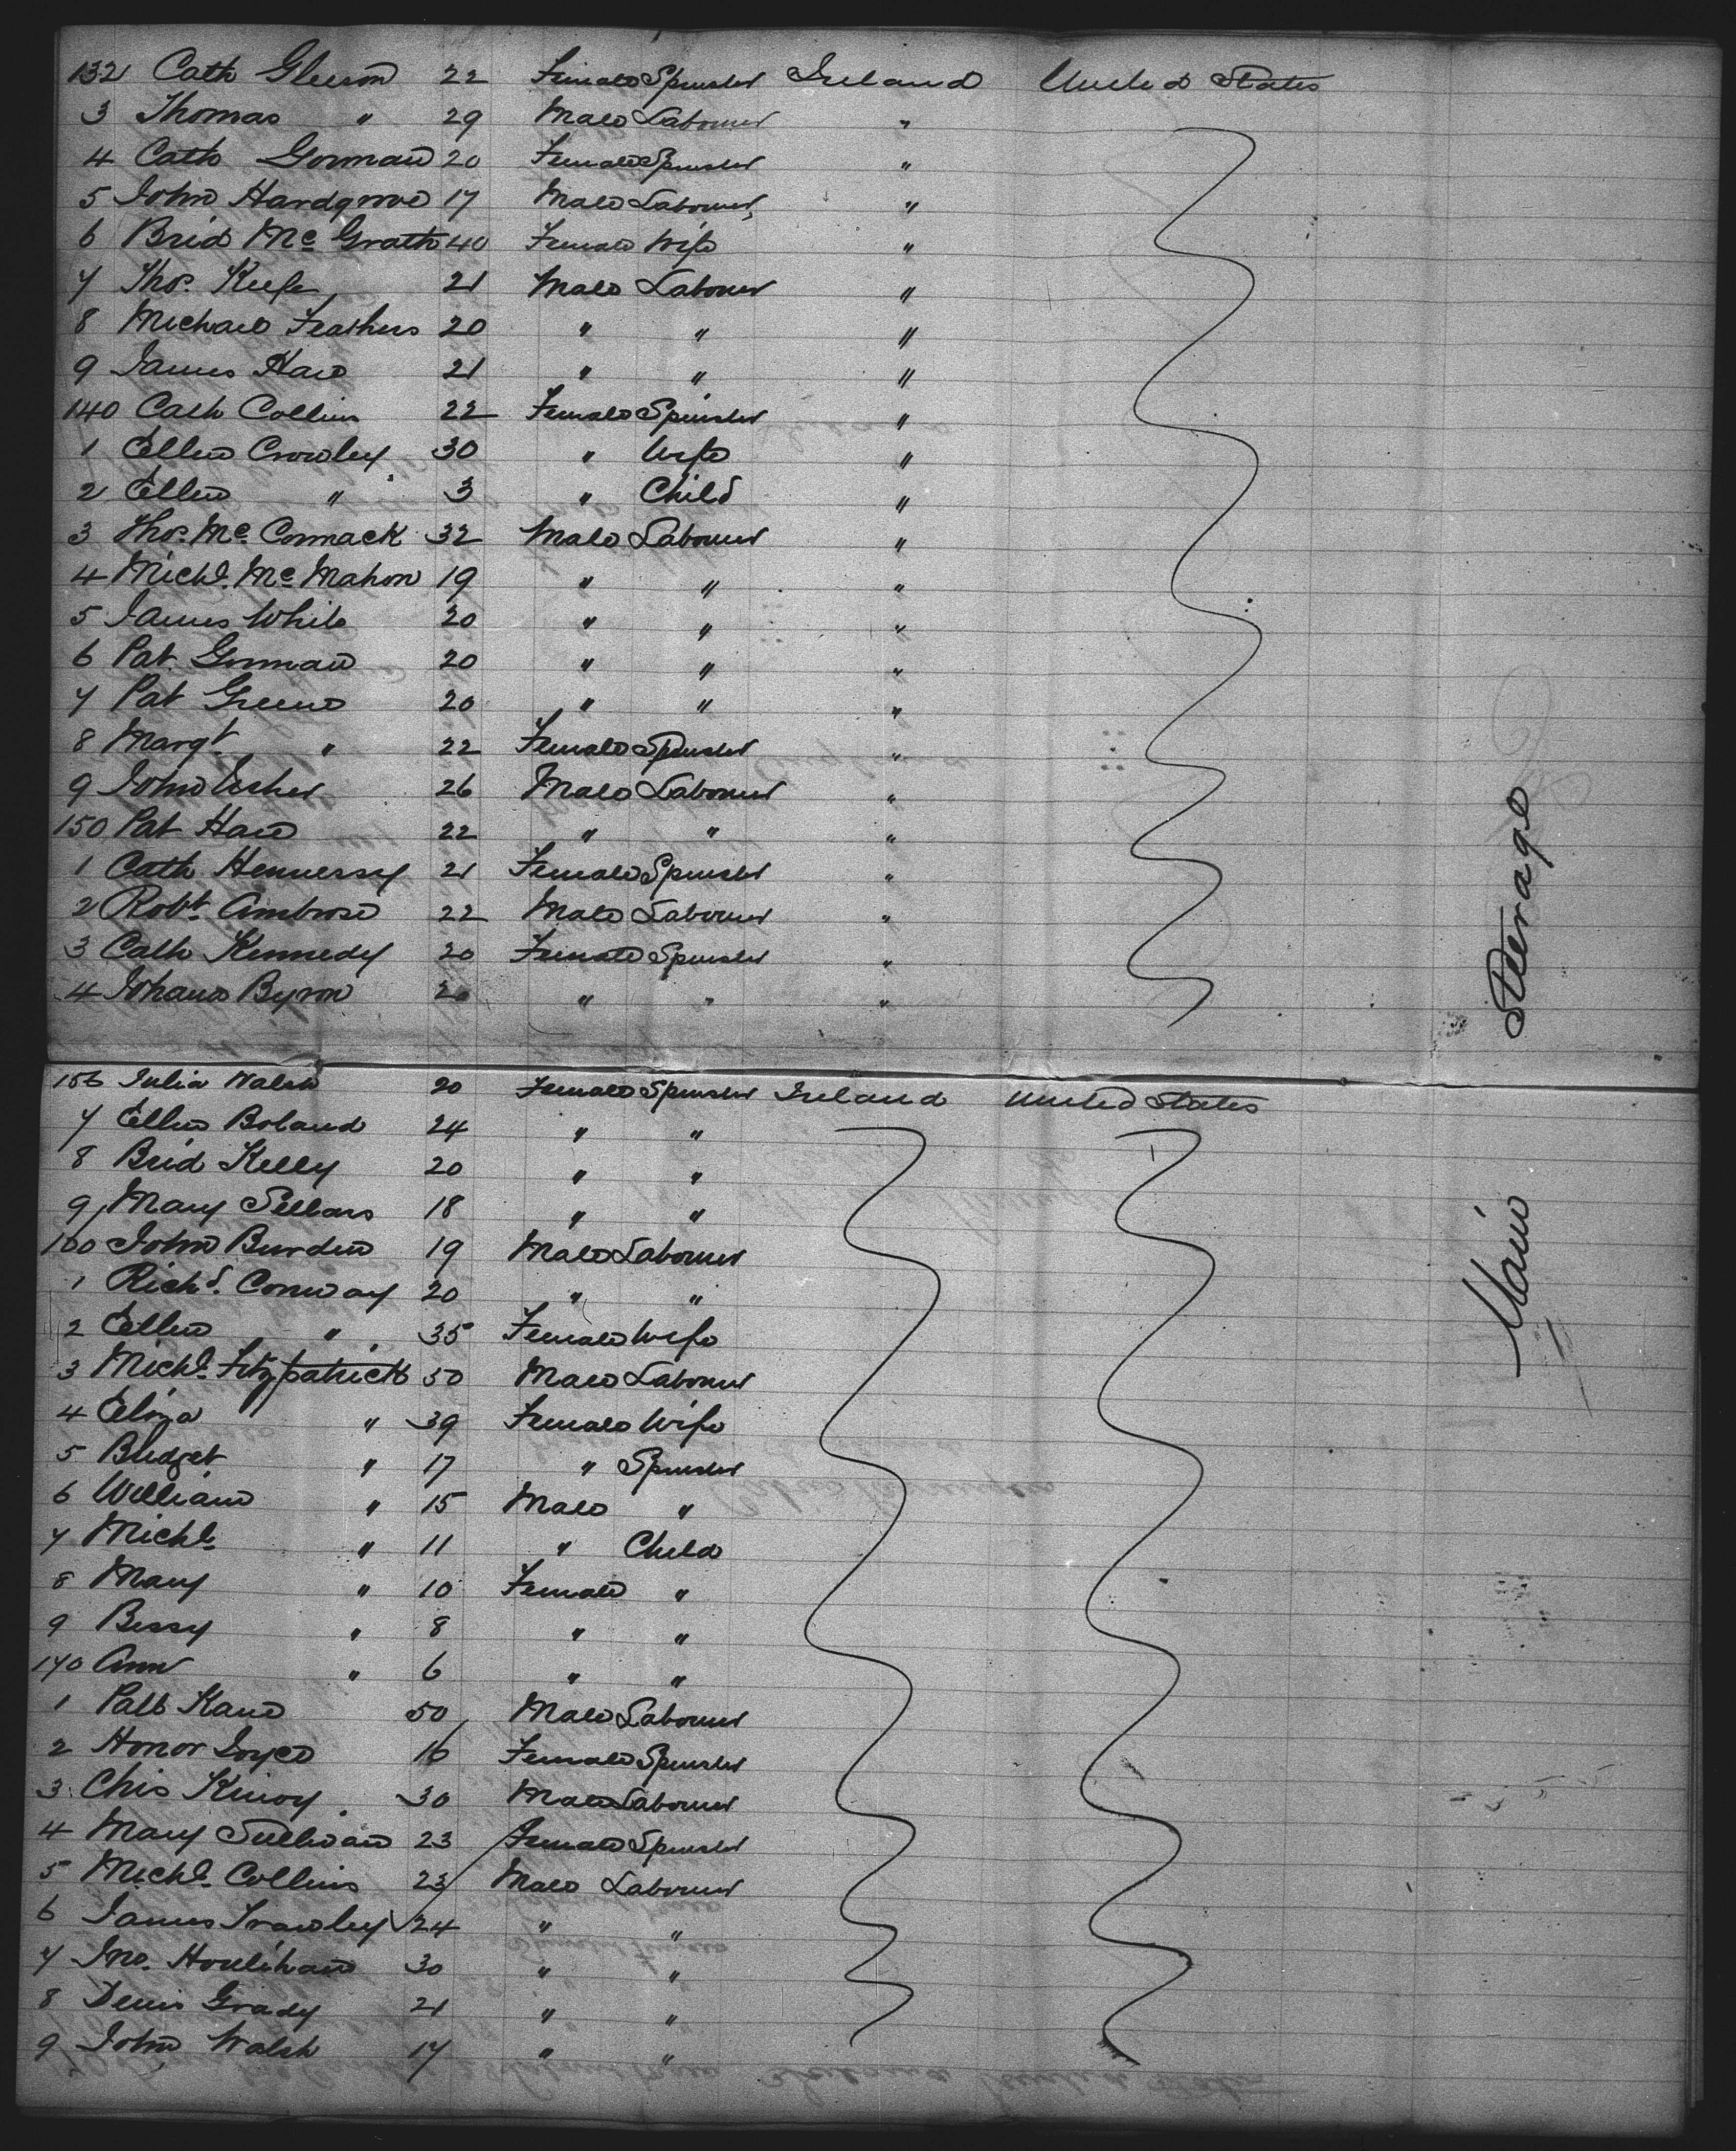 132 Cath Gleeson 22 Female Spinster Ireland United States
3 Thomas " 29 Male Labourer "
4 Cath Gorman 20 Female Spinster "
5 John Hardgrove 17 Male Labourer "
6 Brid Mc Grath 40 Female Wife "
7 Thos. Keefe 21 Male Labourer "
8 Michael Feathers 20 " " "
9 James 21 " " "
140 Cath Collins 22 Female Spinster "
1 Ellen Crowley 30 " Wife "
2 Ellen " 3 " Child "
3 Thos. Mc Cormack 32 Male Labourer "
4 Michl. Mc Mahon 19 " " "
5 James White 20 " " "
6 Pat. Gorman 20 " " "
7 Pat Greene 20 " " "
8 Margt. " 22 Female Spinster "
9 John Usher 26 Male Labourer "
150 Pat Haw 22 " " "
1 Cath Hennessy 21 Female Spinster "
2 Robt. Ambrose 22 Male Labourer "
3 Cath Kennedy 20 Female Spinster "
4 Johana Byron 20 " " "
Steerage
156 Julia Walsh 20 Female Spinster Ireland United States
7 Ellen Boland 24 " "
8 Brid Kelly 20 " "
9 Mary Sellars 18 " "
160 John Burden 19 Male Labourer
1 Richd. Conway 20 " "
2 Ellen " 35 Female Wife
3 Michl. Fitzpatrick 50 Male Labourer
4 Eliza " 39 Female Wife
5 Bridget " 17 " Spinster
6 William " 15 Male "
7 Michl. " 11 " Child
8 Mary " 10 Female "
9 Bessy " 8 " "
170 Ann " 6 " "
1 Patt Kane 50 Male Labourer
2 Honor Joyce 16 Female Spinster
3 Chis Kinoy 30 Male Labourer
4 Mary Sullivan 23 Female Spinster
5 Michl. Collins 23 Male Labourer
6 James Trawley 24 " "
7 Jno. Houlihan 30 " "
8 Denis Grady 21 " "
9 John Walsh 17 " "
Main